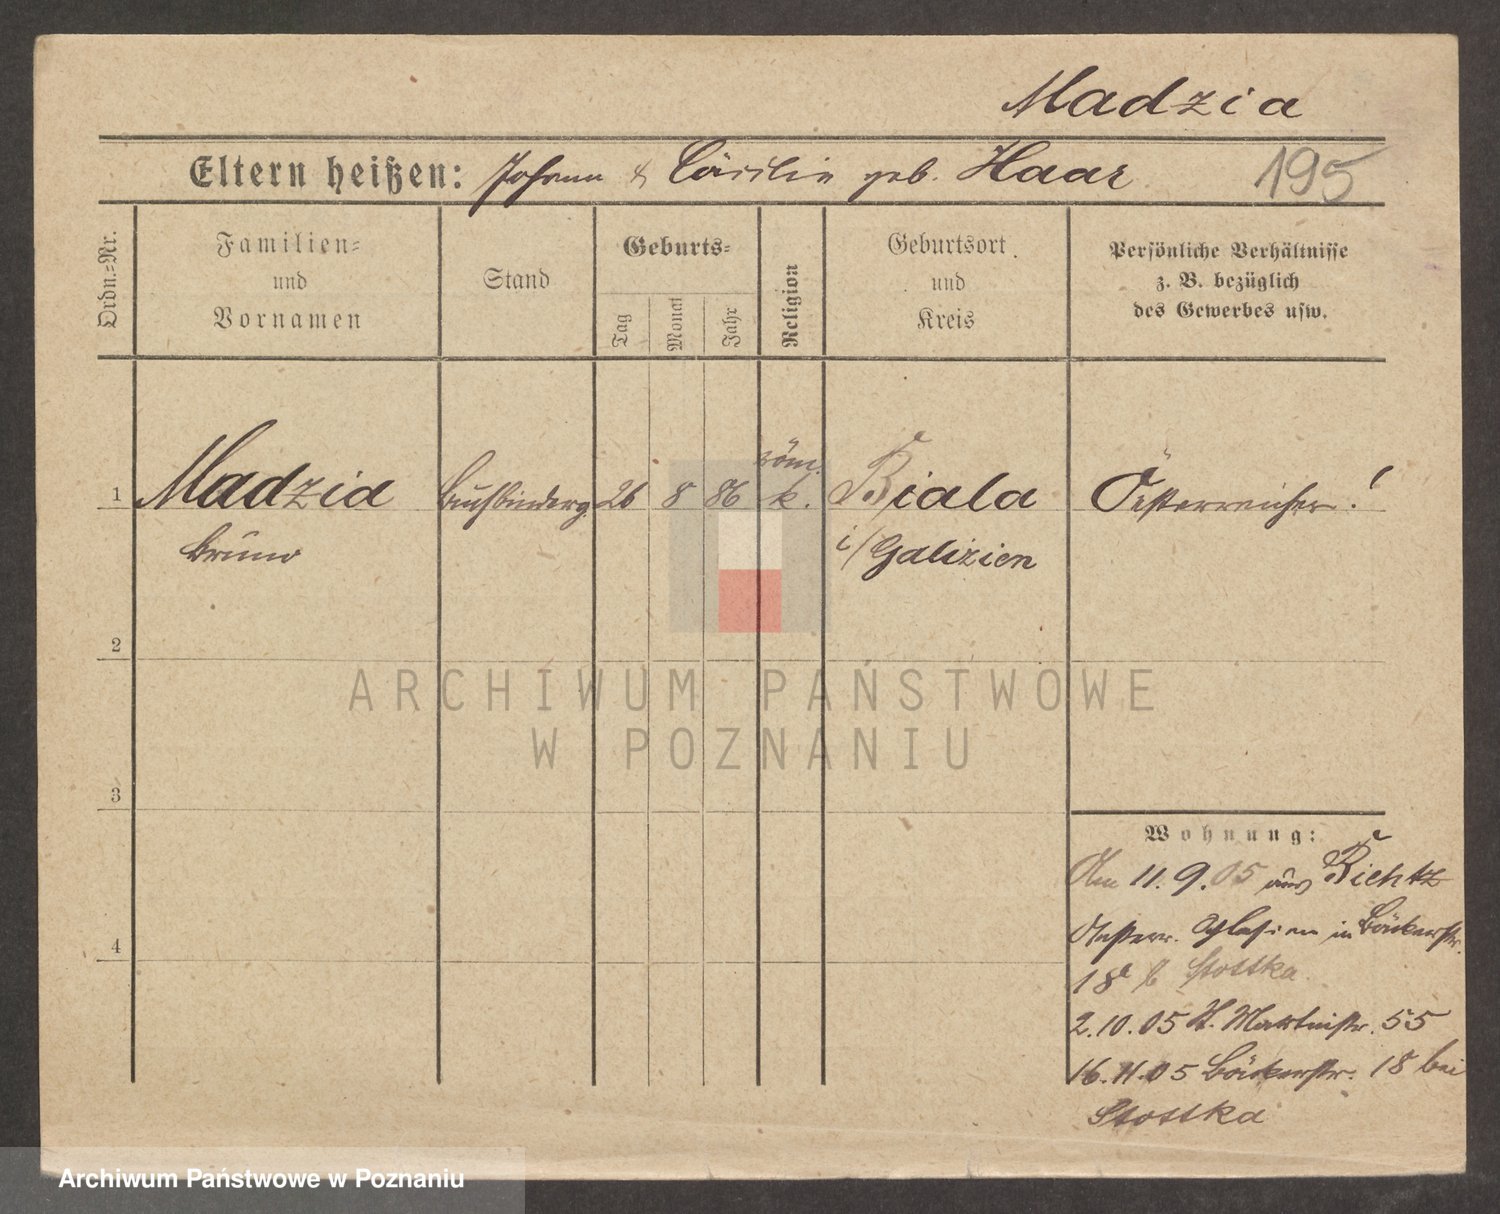 Madzia
Eltern heißen: Johann & Cäcilie geb. Haar 195
Ordn.-Nr.
Familien-
und
Vornamen
Stand
Geburts-
Tag
Monat
Jahr
Religion
Geburtsort
und
Kreis
Persönliche Verhältnisse
z. B. bezüglich
des Gewerbes usw.
1 Madzia Buchbinderg. 26 8 86 röm. k. Biala Oesterreicher!
Bruno i/Galizien
2
3
4
Wohnung:
Am 11.9.05 aus
Oesterr. Schlesien in Bäckerstr.
18a b Stottka
2.10.05 St. Martinstr. 55
16.11.05 Bäckerstr. 18 bei
Stottka
ARCHIWUM PAŃSTWOWE
W POZNANIU
Archiwum Państwowe w Poznaniu